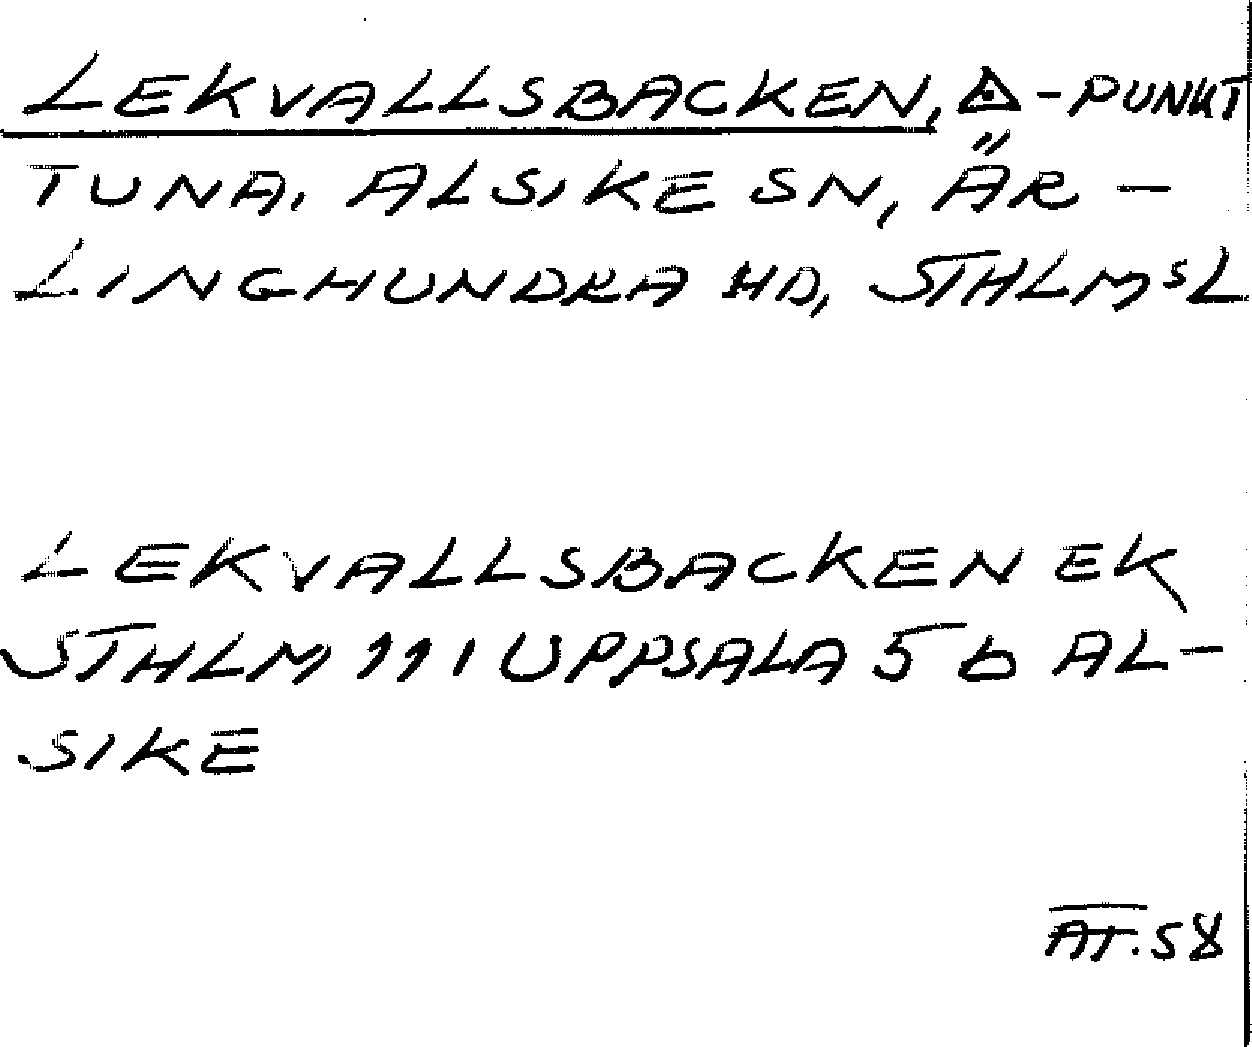 LEKVALLSBACKEN, △-PUNKT
TUNA. ALSIKE SN, ÄR-
LINGHUNDRA HD, STHLMSL
LEKVALLSBACKEN EK
STHLM 111 UPPSALA 5 b AL-
SIKE
AT.58